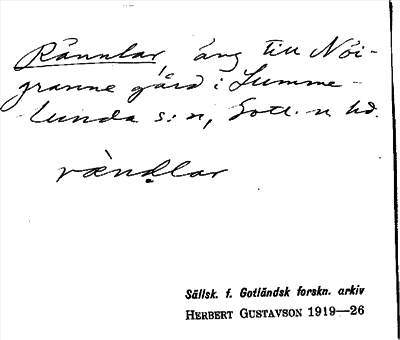 Rännlar, äng till Nöi-
granne gård i Lumme-
lunda s:n, Gotl. n hd.
ràndlar
Sällsk. f. Gotländsk forskn. arkiv
HERBERT GUSTAVSON 1919—26